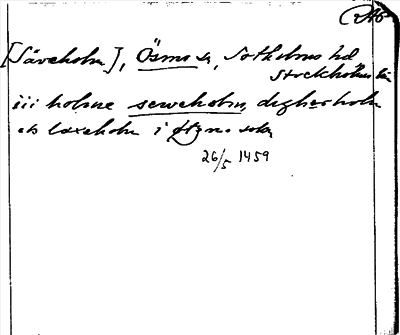 [Säveholm], Ösmo sn, Sotholms hd
Stockholms län
iii holme seweholm, digherholm
oc laxeholm i sokn
26/5 1459